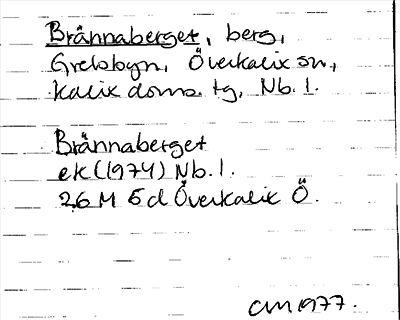 Brännaberget, berg,
Grelsbyn, Överkalix sn,
Kalix doms. tg, Nb. l.
Brännaberget
ek (1974) Nb. l.
26 M 5 d Överkalix Ö.
CM 1977.